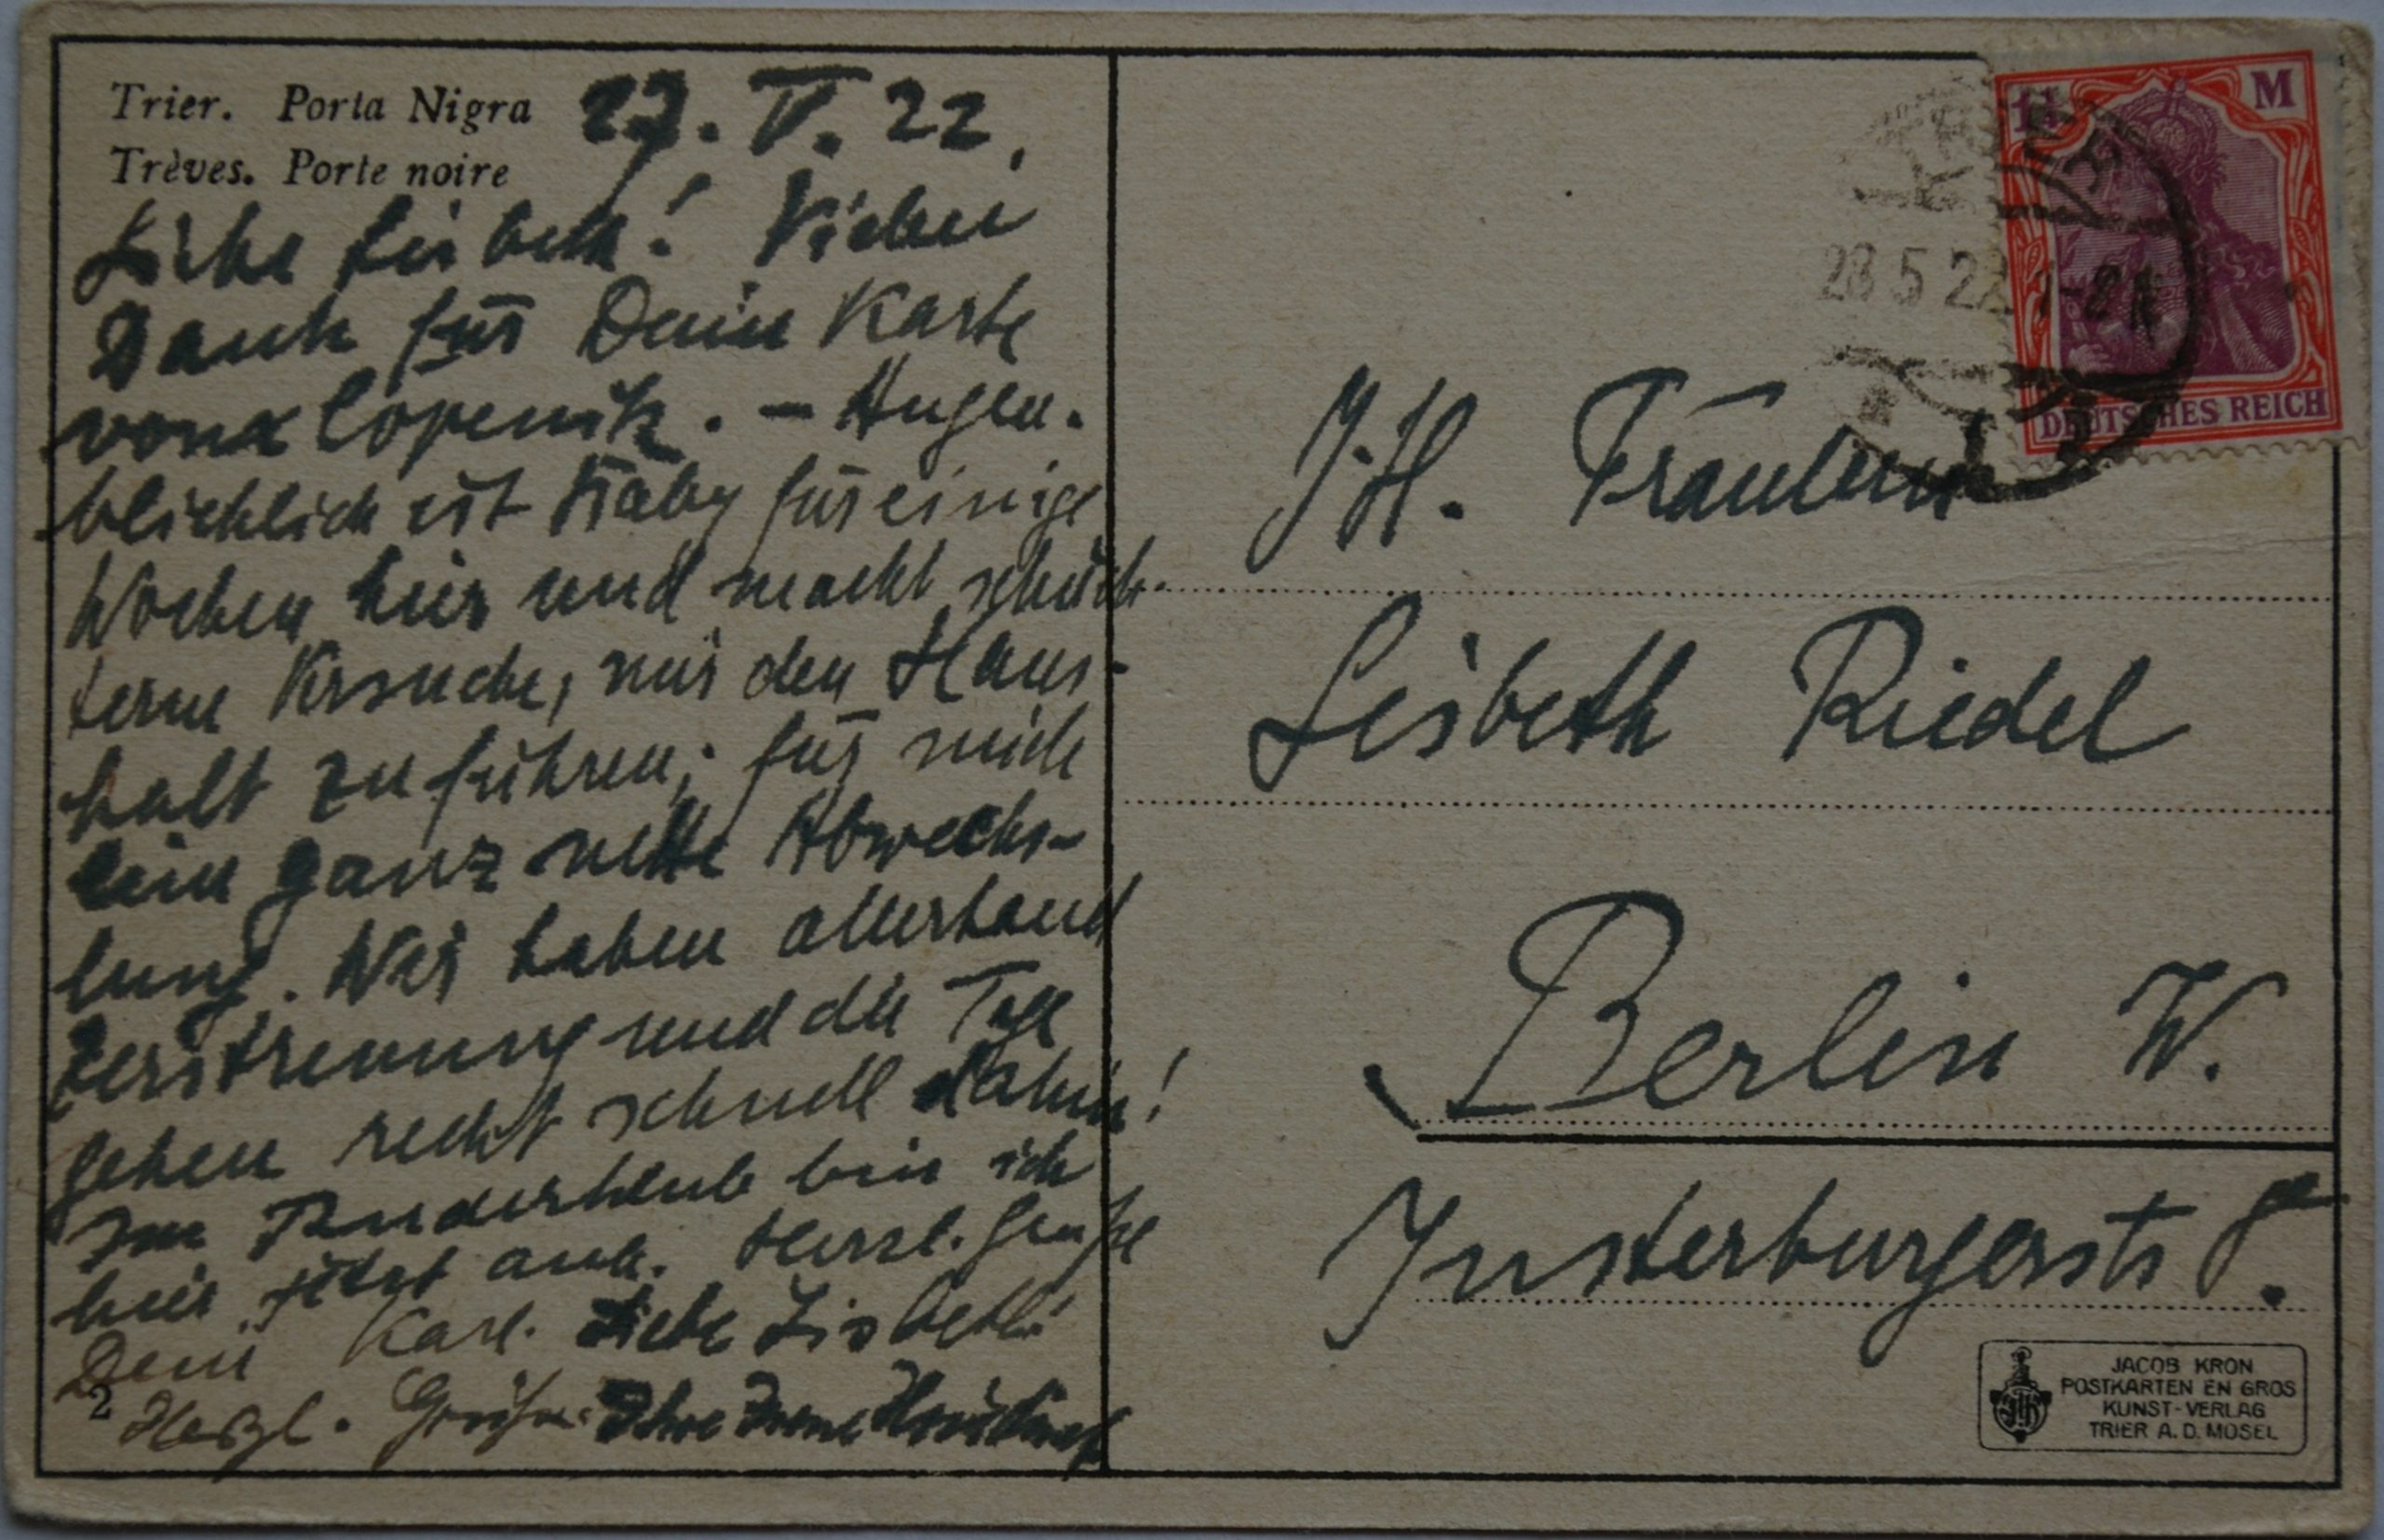 Trier. Porta Nigra 27. V. 22.
Trèves. Porte noire
Liebe Lisbeth! Vielen
Dank für Deine Karte
von Cöpenik. – Augen-
blicklich ist für einige
Wochen hier und macht schüch-
terne Versuche, mir den Haus-
halt zu führen; für mich
eine ganz nette Abwechs-
lung. Wir haben allerhand
Zerstreuung und die Tage
gehen recht schnell dahin!
Im Ruderklub bin ich
hier jetzt auch. Herzl. Grüße
Dein Karl. Liebe Lisbeth!
Herzl. Grüße Ihre
2
TRIER
28 5 22 1-2 N
1¼ M
DEUTSCHES REICH
Fräulein
Lisbeth Riedel
Berlin W.
Insterburgerstr
JACOB KRON
POSTKARTEN EN GROS
KUNST-VERLAG
TRIER A. D. MOSEL